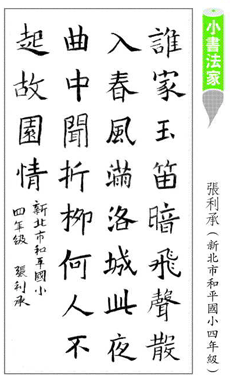 小書法家
張利承（新北市和平國小四年級）
誰家玉笛暗飛聲散
入春風滿洛城此夜
曲中聞折柳何人不
起故園情
新北市和平國小
四年級 張利承